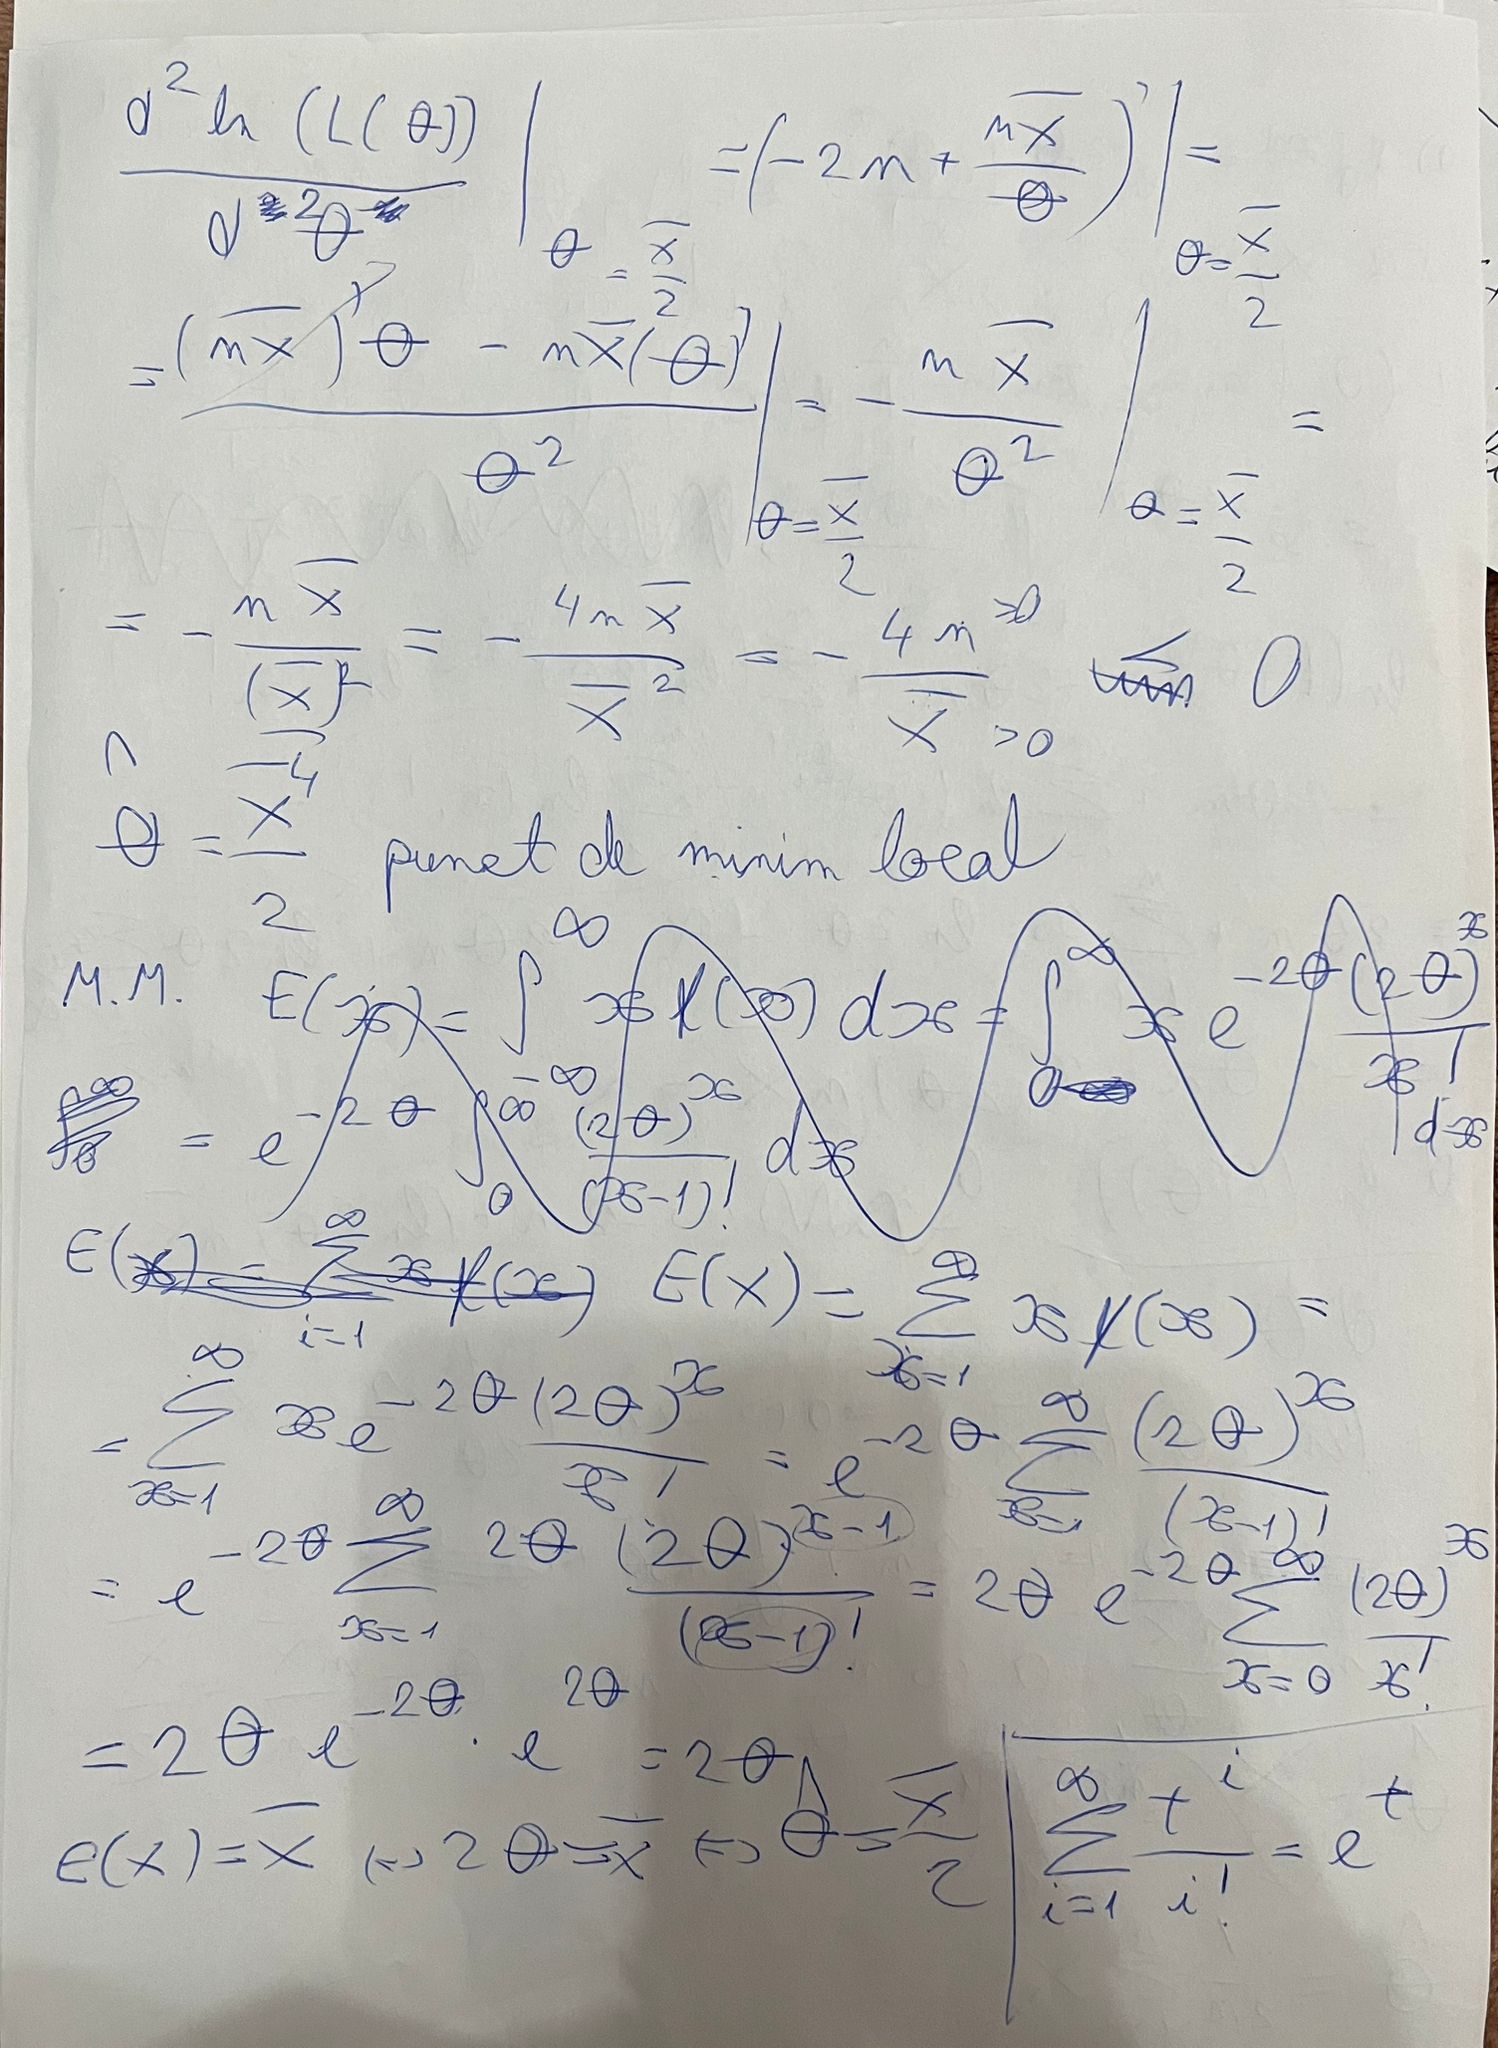 d² ln (L(θ)) / d²θ |θ = x̄/2 = (-2n + nx̄/θ)' |θ = x̄/2 =
= ((nx̄)'θ - nx̄(θ)') / θ² |θ = x̄/2 = - nx̄/θ² |θ = x̄/2 =
= - nx̄ / ((x̄)²/4) = - 4nx̄/x̄² = - 4n >0 / x̄ >0 < 0
θ̂ = x̄/2 punct de minim local
M.M. E(x) = ∫_{-∞}^{∞} x f(x) dx = ∫_0^∞ x e^{-2θ} (2θ)^x / x! dx
= e^{-2θ} ∫_0^∞ (2θ)^x / (x-1)! dx
E(x) = Σ_{i=1}^∞ x f(x) E(X) = Σ_{x=1}^∞ x f(x) =
= Σ_{x=1}^∞ x e^{-2θ} (2θ)^x / x! = e^{-2θ} Σ_{x=1}^∞ (2θ)^x / (x-1)!
= e^{-2θ} Σ_{x=1}^∞ 2θ (2θ)^{x-1} / (x-1)! = 2θ e^{-2θ} Σ_{x=0}^∞ (2θ)^x / x!
= 2θ e^{-2θ} · e^{2θ} = 2θ
E(X) = x̄ ⇔ 2θ = x̄ ⇔ θ̂ = x̄/2
Σ_{i=1}^∞ t^i / i! = e^t